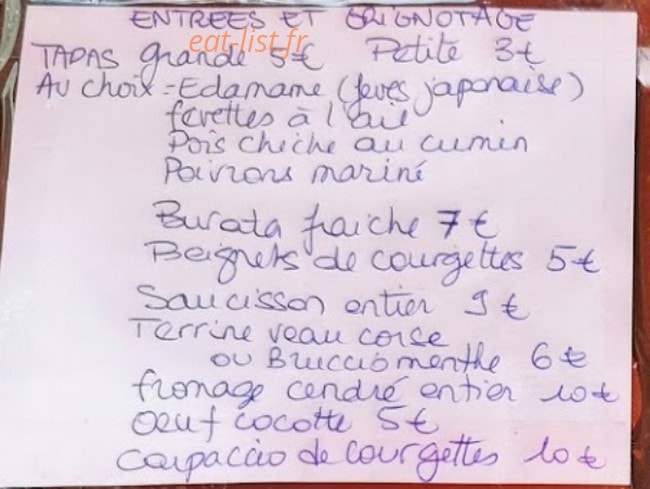 ENTREES ET GRIGNOTAGE
eat-list.fr
TAPAS Grande 5€ Petite 3€
Au choix = Edamame (feves japonaise)
fevettes à l'ail
Pois chiche au cumin
Poivrons mariné
Burata fraiche 7€
Beignets de courgettes 5€
Saucisson entier 9€
Terrine veau corse
ou Bruccio menthe 6€
fromage cendré entier 10€
Oeuf cocotte 5€
Carpaccio de courgettes 10€